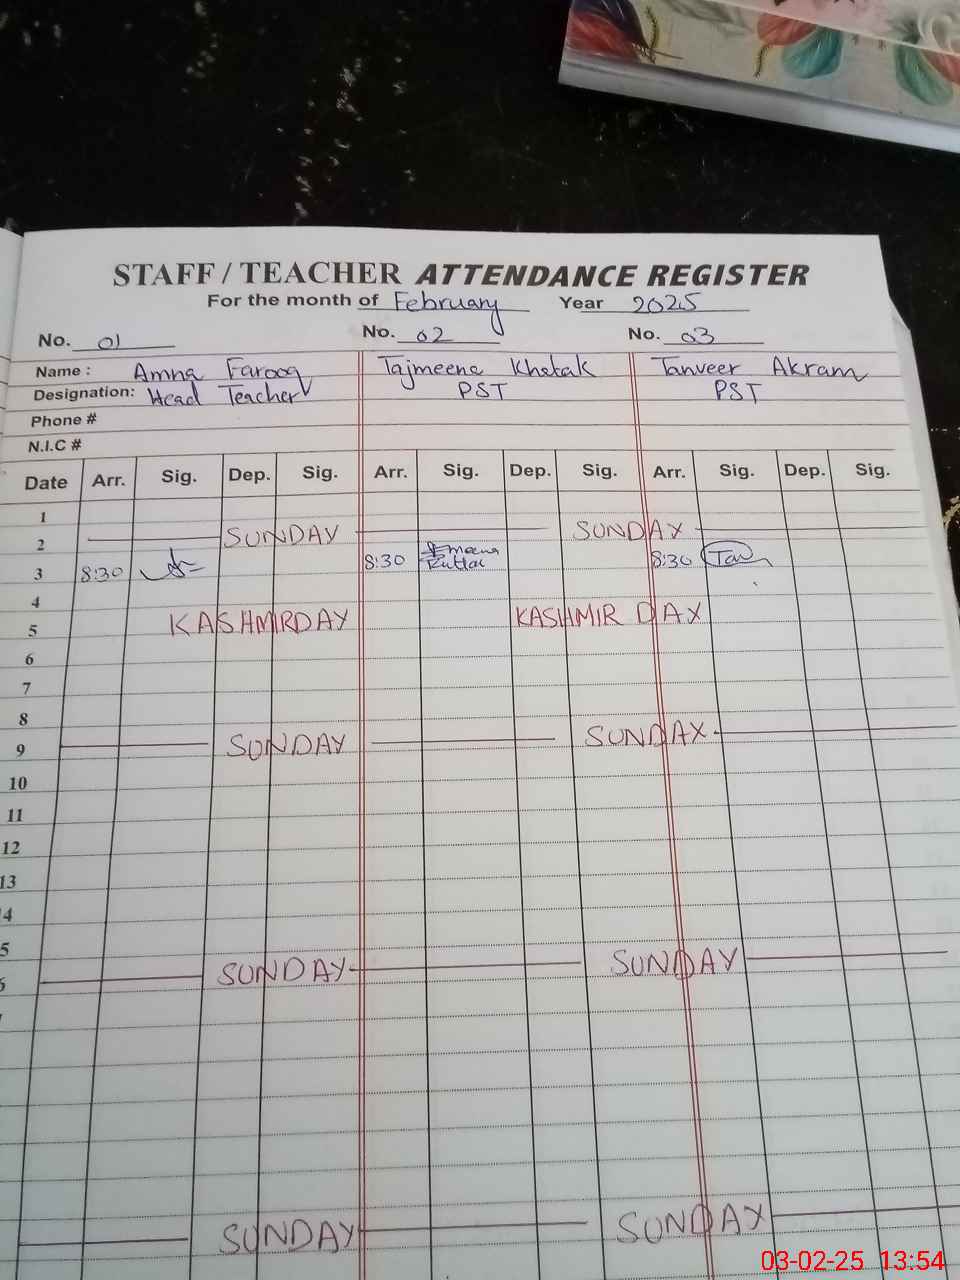 STAFF / TEACHER ATTENDANCE REGISTER
For the month of February Year 2025
No. 01 No. 02 No. 03
Name : Amna Farooq Tajmeena Khatak Tanveer Akram
Designation: Head Teacher PST PST
Phone #
N.I.C #
Date Arr. Sig. Dep. Sig. Arr. Sig. Dep. Sig. Arr. Sig. Dep. Sig.
1
2 SUNDAY SUNDAY
3 8:30 8:30 8:30 Tan
4
5 KASHMIR DAY KASHMIR DAY
6
7
8
9 SUNDAY SUNDAY
10
11
12
13
4
5
6 SUNDAY SUNDAY
SUNDAY SUNDAY
03-02-25 13:54